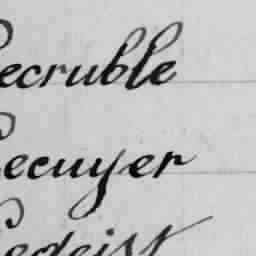 Lecruble
Lecuyer
Ledeist